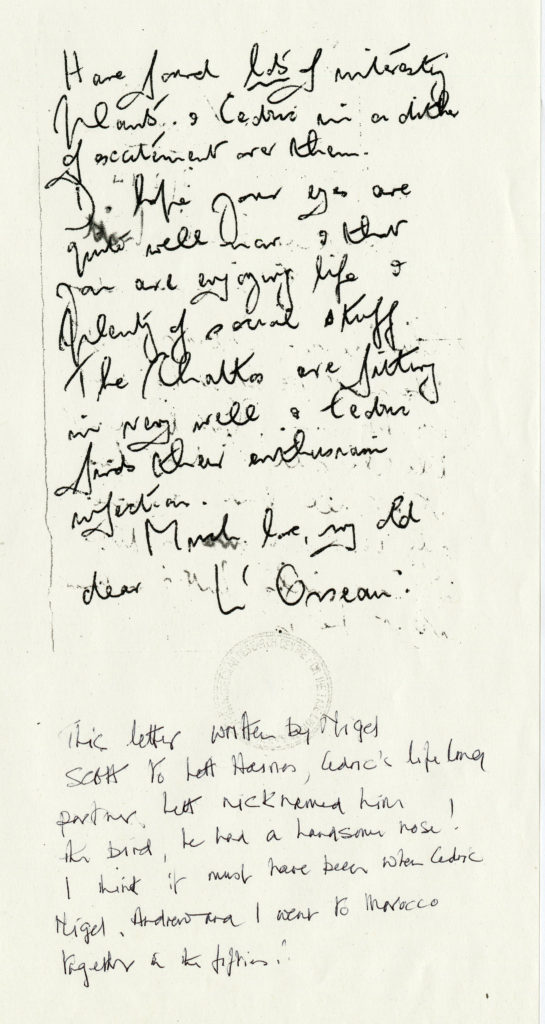 Have found lots of interesting
plants. & Cedric in a dither
of excitement over them.
I hope your eyes are
quite well now & that
you are enjoying life &
plenty of social stuff.
The Chattos are fitting
in very well & Cedric
finds their enthusiasm
infectious.
Much love, my old
dear L'Oiseau.
This letter written by Nigel
Scott to Lett Haines, Cedric's life long
partner. Lett nicknamed him
the bird, he had a handsome nose!
I think it must have been when Cedric
Nigel, Andrew and I went to Morocco
together in the fifties.